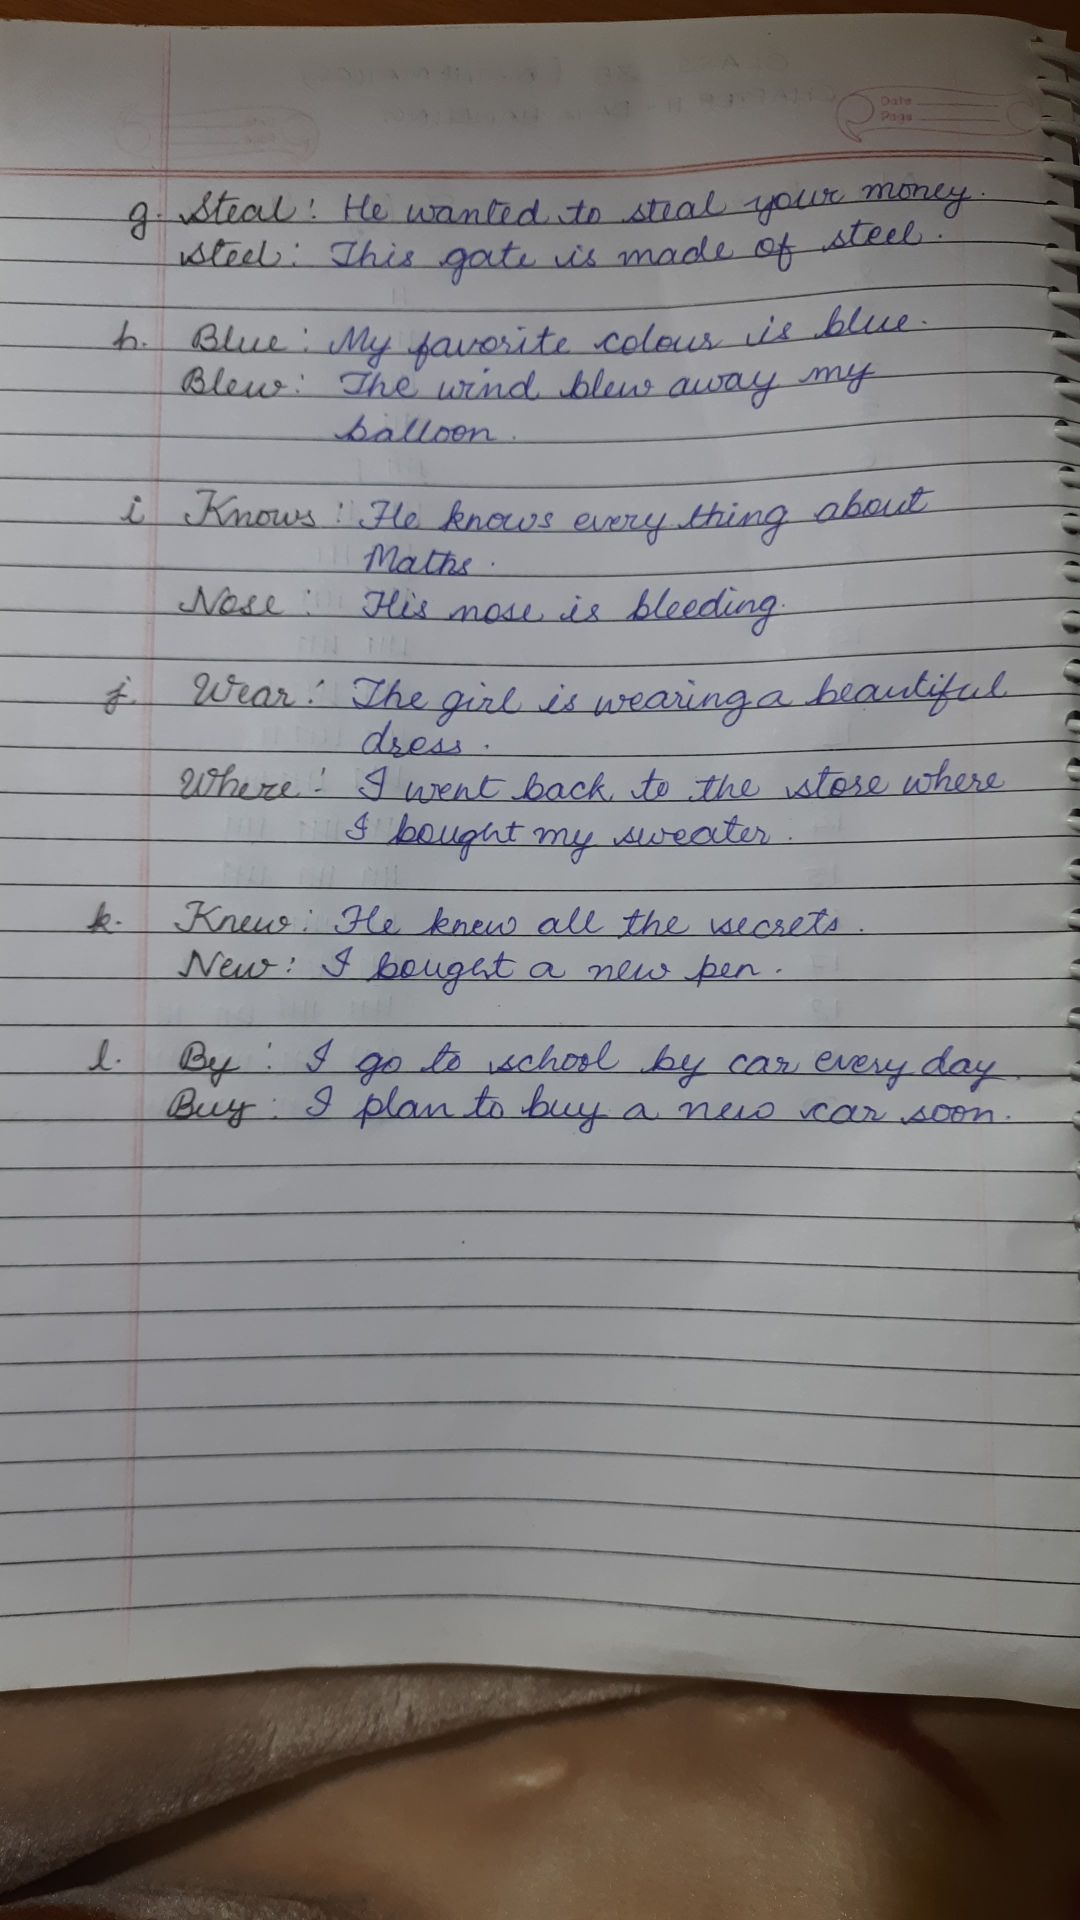 Date
Page
g. Steal: He wanted to steal your money.
Steel: This gate is made of steel.
h. Blue: My favorite colour is blue.
Blew: The wind blew away my
balloon.
i Knows: He knows every thing about
Maths.
Nose: His nose is bleeding.
j. Wear: The girl is wearing a beautiful
dress.
Where: I went back to the store where
I bought my sweater.
k. Knew: He knew all the secrets.
New: I bought a new pen.
l. By: I go to school by car every day.
Buy: I plan to buy a new car soon.